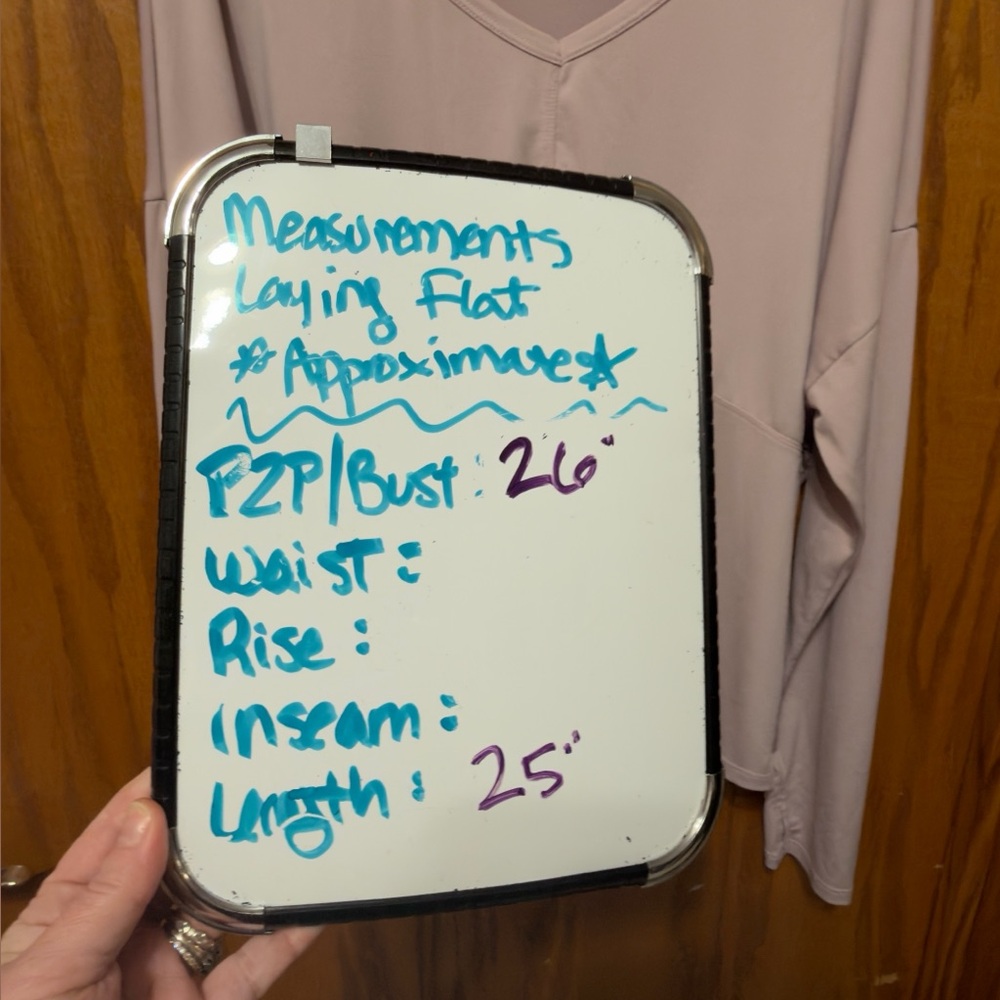 Measurements
Laying Flat
*Approximate*
P2P/Bust: 26"
Waist:
Rise:
Inseam:
Length: 25"